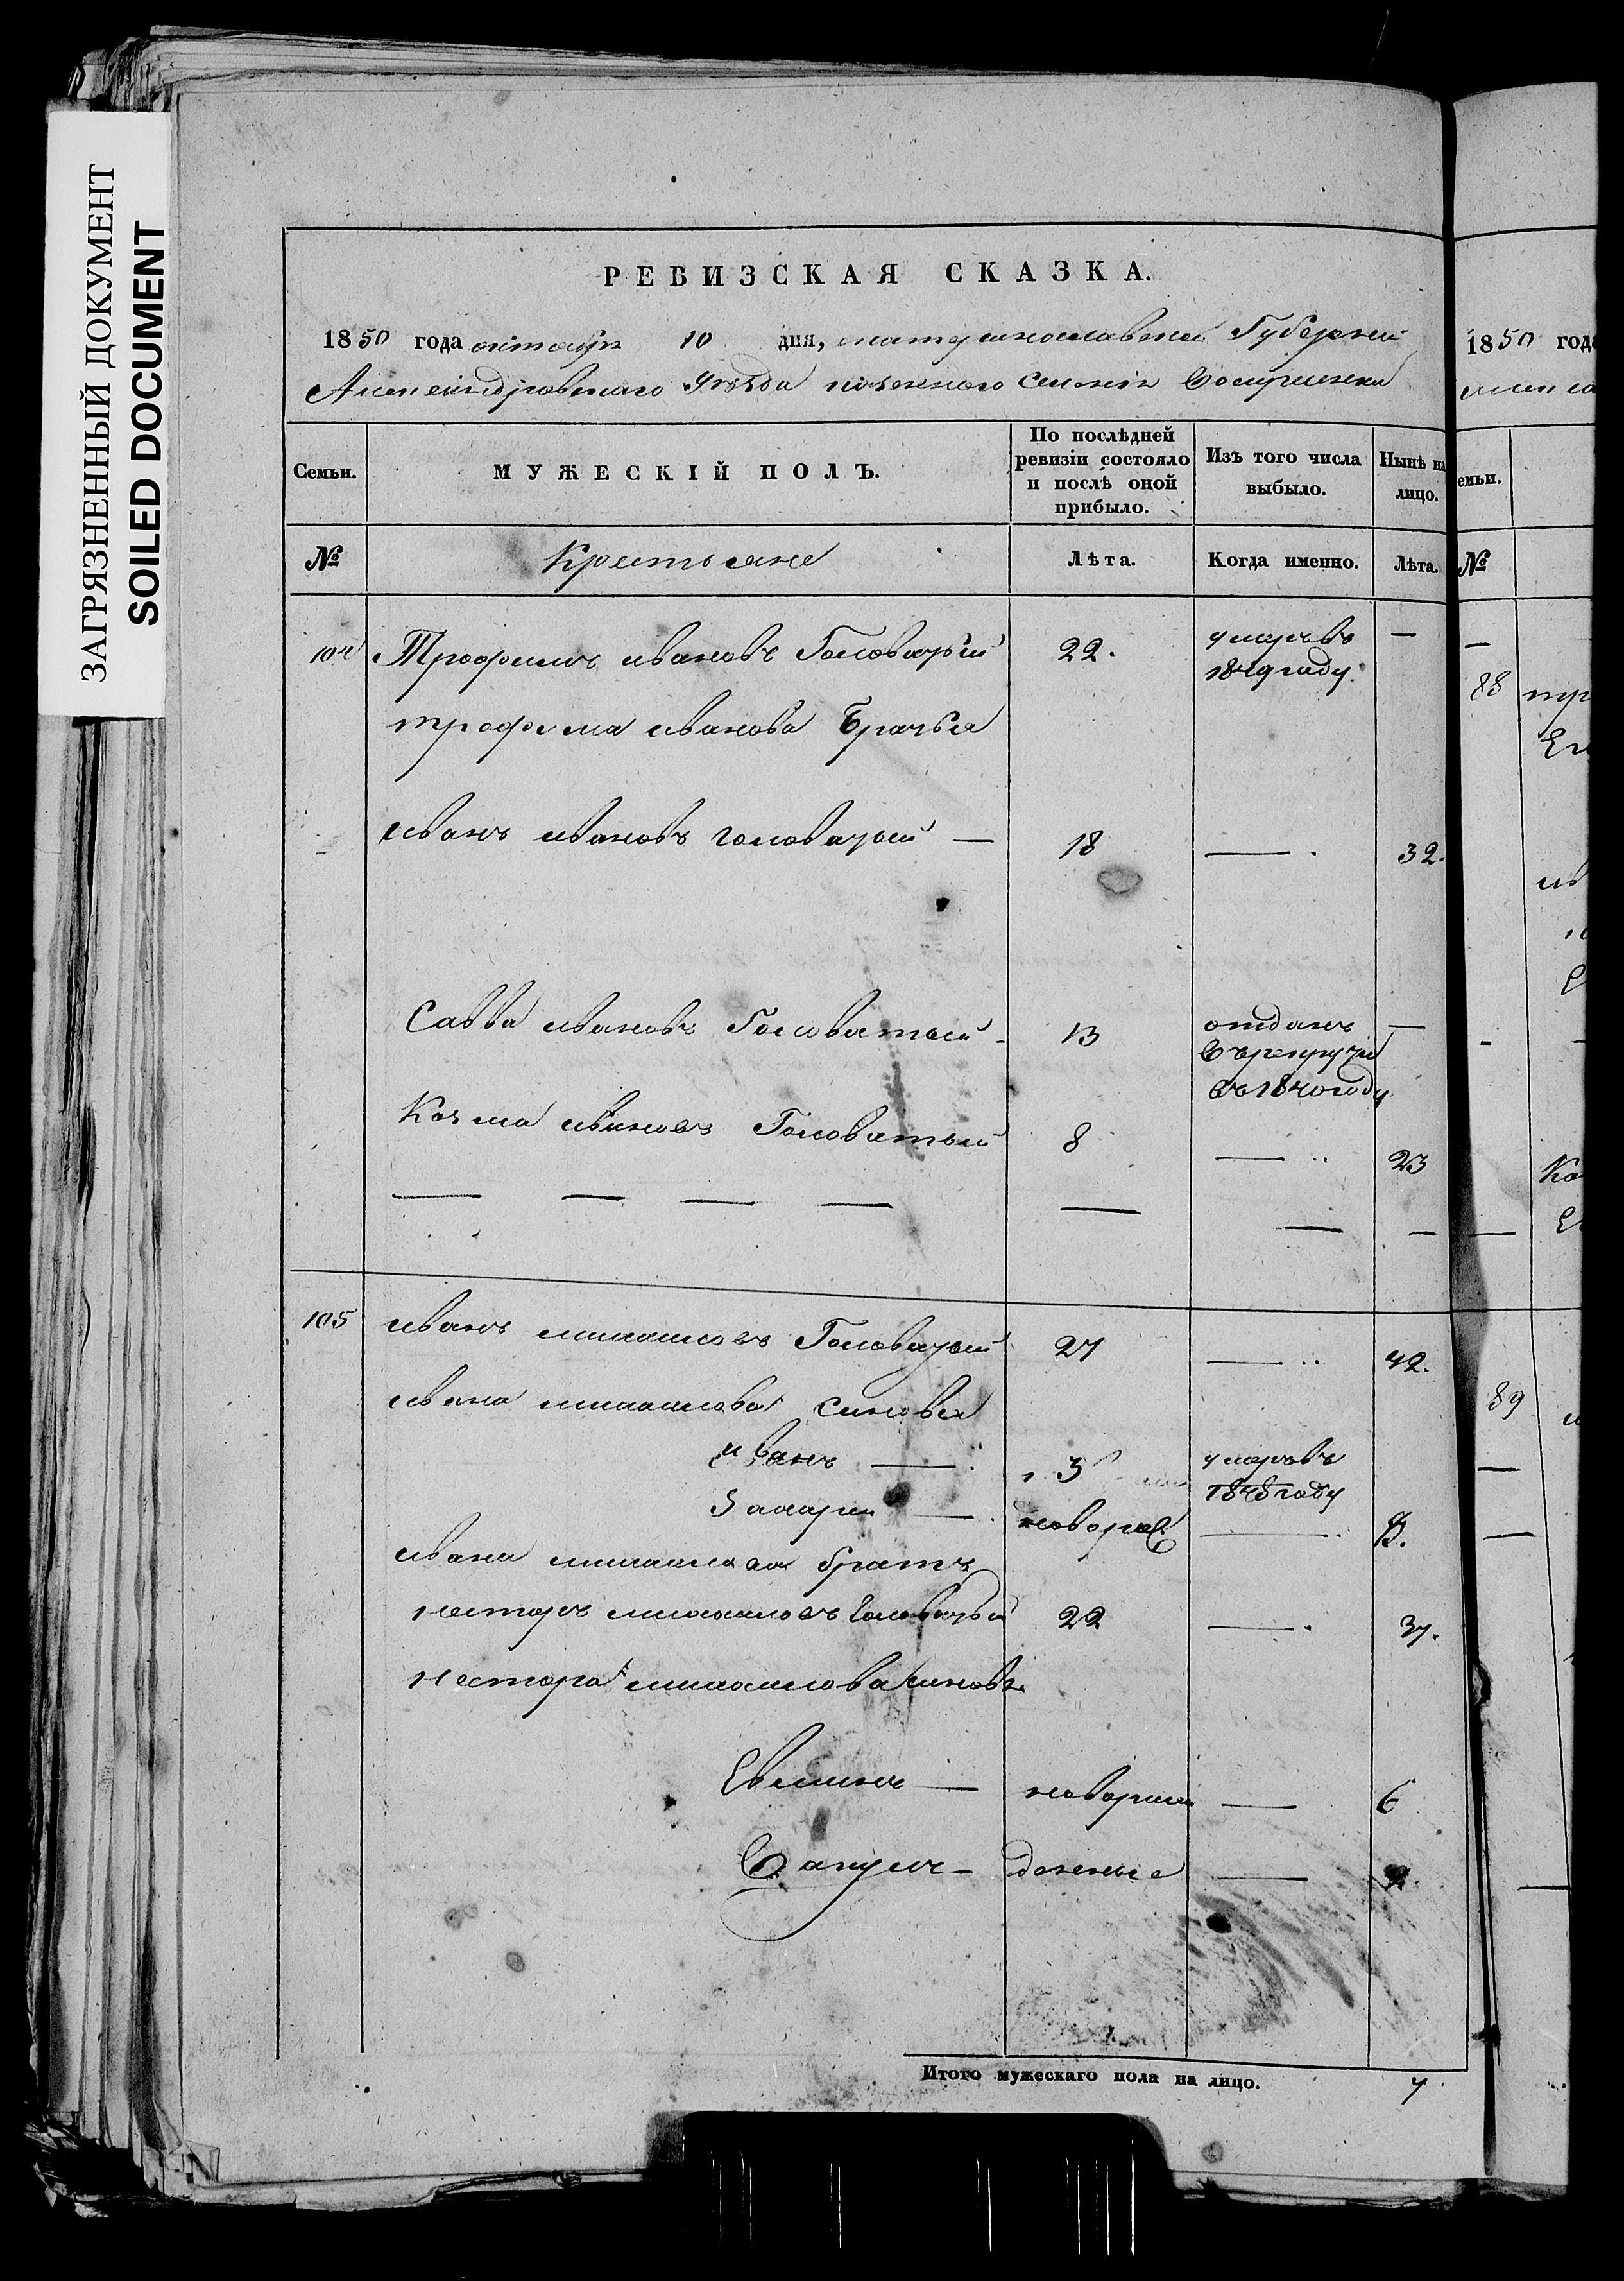 ЗАГРЯЗНЕННЫЙ ДОКУМЕНТ
SOILED DOCUMENT
РЕВИЗСКАЯ СКАЗКА.
1850 года октября 10 дня, екатеринославской Губернии
Александровского уезда казенного селенія
Семьи.
МУЖЕСКІЙ ПОЛЪ.
По послѣдней ревизіи состояло и послѣ оной прибыло.
Изъ того числа выбыло.
Нынѣ на лицо.
№ Крестьяне Лѣта. Когда именно. Лѣта.
104 Трофимъ ивановъ Головатый 22. умеръ въ 1849 году. —
трофима иванова Братья
иванъ ивановъ головатый — 18 — 32.
Савва ивановъ Головатый 13 отданъ въ рекруты въ 1840 году —
Козма ивановъ Головатый 8 — 23
105 иванъ михайловъ Головатый 27 — 42.
ивана михайлова синовья
иванъ — 3 умеръ въ 1848 году
Захарій — новорож — 8.
ивана михайлова братъ
несторъ михайловъ Головатый 22 — 37.
нестора михайлова синовья
— новорож — 6
— денные —
Итого мужескаго пола на лицо. 7
1850 года
емьи.
№
88
89